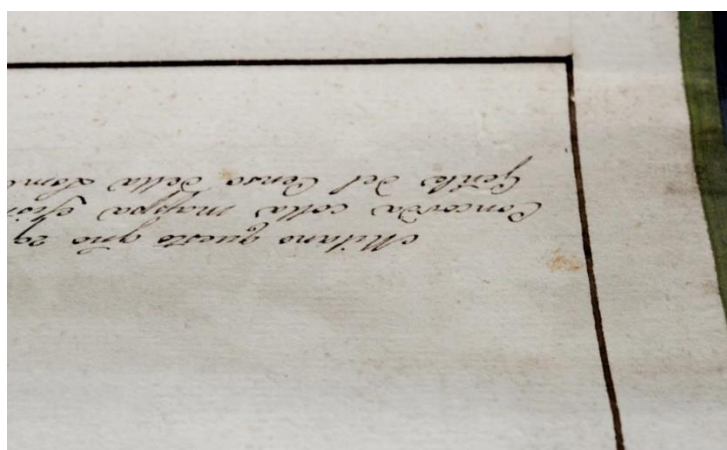 Milano questo gño 29
Concorda colla mappa Esis
del Censo della Lom